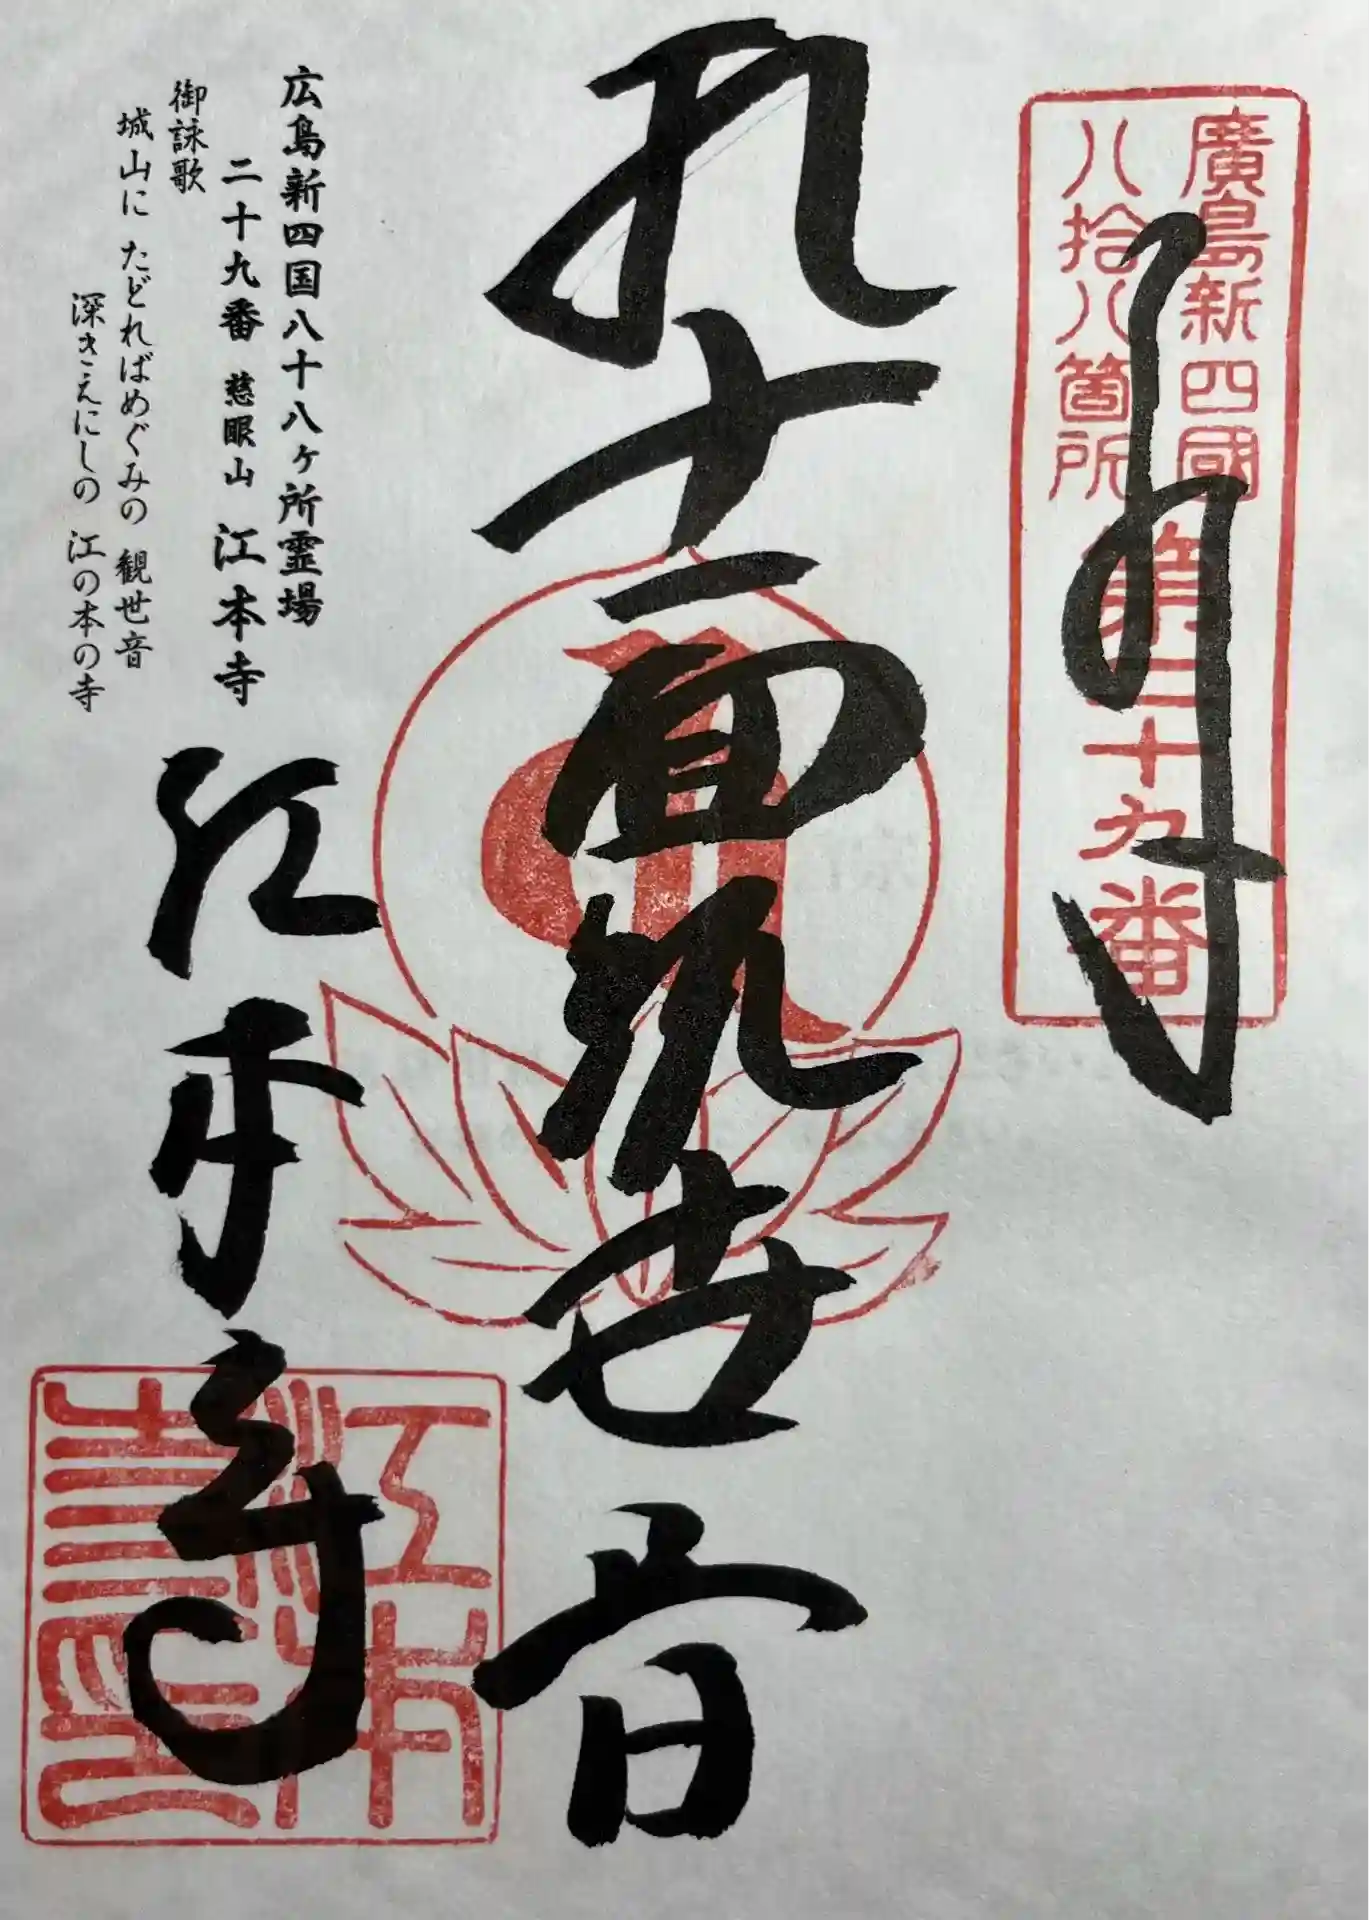 廣島新四國
八拾八箇所
第二十九番
十一面観世音
広島新四国八十八ヶ所霊場
二十九番 慈眼山 江本寺
御詠歌
城山に たどればめぐみの 観世音
深きえにしの 江の本の寺
江本寺